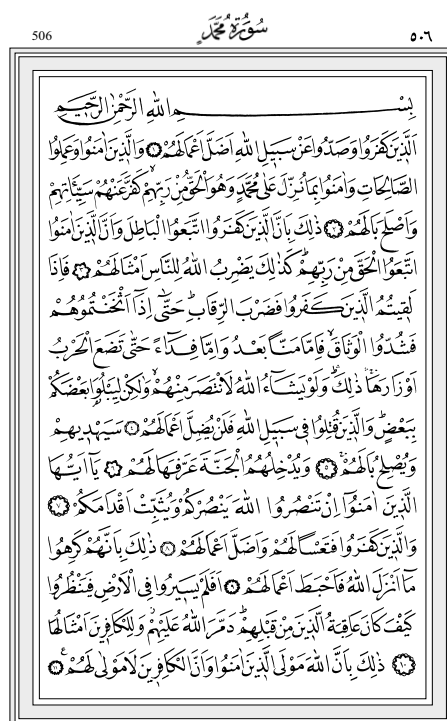 506 سُورَةُ مُحَمَّدٍ ٥٠٦
بِسْمِ اللهِ الرَّحْمٰنِ الرَّحِيمِ
اَلَّذِينَ كَفَرُوا وَصَدُّوا عَنْ سَبِيلِ اللهِ اَضَلَّ اَعْمَالَهُمْ ﴿١﴾ وَالَّذِينَ اٰمَنُوا وَعَمِلُوا
الصَّالِحَاتِ وَاٰمَنُوا بِمَا نُزِّلَ عَلٰى مُحَمَّدٍ وَهُوَ الْحَقُّ مِنْ رَبِّهِمْۙ كَفَّرَ عَنْهُمْ سَيِّـَٔاتِهِمْ
وَاَصْلَحَ بَالَهُمْ ﴿٢﴾ ذٰلِكَ بِاَنَّ الَّذِينَ كَفَرُوا اتَّبَعُوا الْبَاطِلَ وَاَنَّ الَّذِينَ اٰمَنُوا
اتَّبَعُوا الْحَقَّ مِنْ رَبِّهِمْۜ كَذٰلِكَ يَضْرِبُ اللهُ لِلنَّاسِ اَمْثَالَهُمْ ﴿٣﴾ فَاِذَا
لَقِيتُمُ الَّذِينَ كَفَرُوا فَضَرْبَ الرِّقَابِۜ حَتّٰٓى اِذَٓا اَثْخَنْتُمُوهُمْ
فَشُدُّوا الْوَثَاقَۙ فَاِمَّا مَنًّا بَعْدُ وَاِمَّا فِدَٓاءً حَتّٰى تَضَعَ الْحَرْبُ
اَوْزَارَهَاۚ ذٰلِكَۜ وَلَوْ يَشَٓاءُ اللهُ لَانْتَصَرَ مِنْهُمْۙ وَلٰكِنْ لِيَبْلُوَا بَعْضَكُمْ
بِبَعْضٍۜ وَالَّذِينَ قُتِلُوا فِى سَبِيلِ اللهِ فَلَنْ يُضِلَّ اَعْمَالَهُمْ ﴿٤﴾ سَيَهْدِيهِمْ
وَيُصْلِحُ بَالَهُمْۚ ﴿٥﴾ وَيُدْخِلُهُمُ الْجَنَّةَ عَرَّفَهَا لَهُمْ ﴿٦﴾ يَٓا اَيُّهَا
الَّذِينَ اٰمَنُٓوا اِنْ تَنْصُرُوا اللهَ يَنْصُرْكُمْ وَيُثَبِّتْ اَقْدَامَكُمْ ﴿٧﴾
وَالَّذِينَ كَفَرُوا فَتَعْسًا لَهُمْ وَاَضَلَّ اَعْمَالَهُمْ ﴿٨﴾ ذٰلِكَ بِاَنَّهُمْ كَرِهُوا
مَٓا اَنْزَلَ اللهُ فَاَحْبَطَ اَعْمَالَهُمْ ﴿٩﴾ اَفَلَمْ يَسِيرُوا فِى الْاَرْضِ فَيَنْظُرُوا
كَيْفَ كَانَ عَاقِبَةُ الَّذِينَ مِنْ قَبْلِهِمْۜ دَمَّرَ اللهُ عَلَيْهِمْۘ وَلِلْكَافِرِينَ اَمْثَالُهَا
﴿١٠﴾ ذٰلِكَ بِاَنَّ اللهَ مَوْلَى الَّذِينَ اٰمَنُوا وَاَنَّ الْكَافِرِينَ لَا مَوْلٰى لَهُمْ۟ ﴿١١﴾